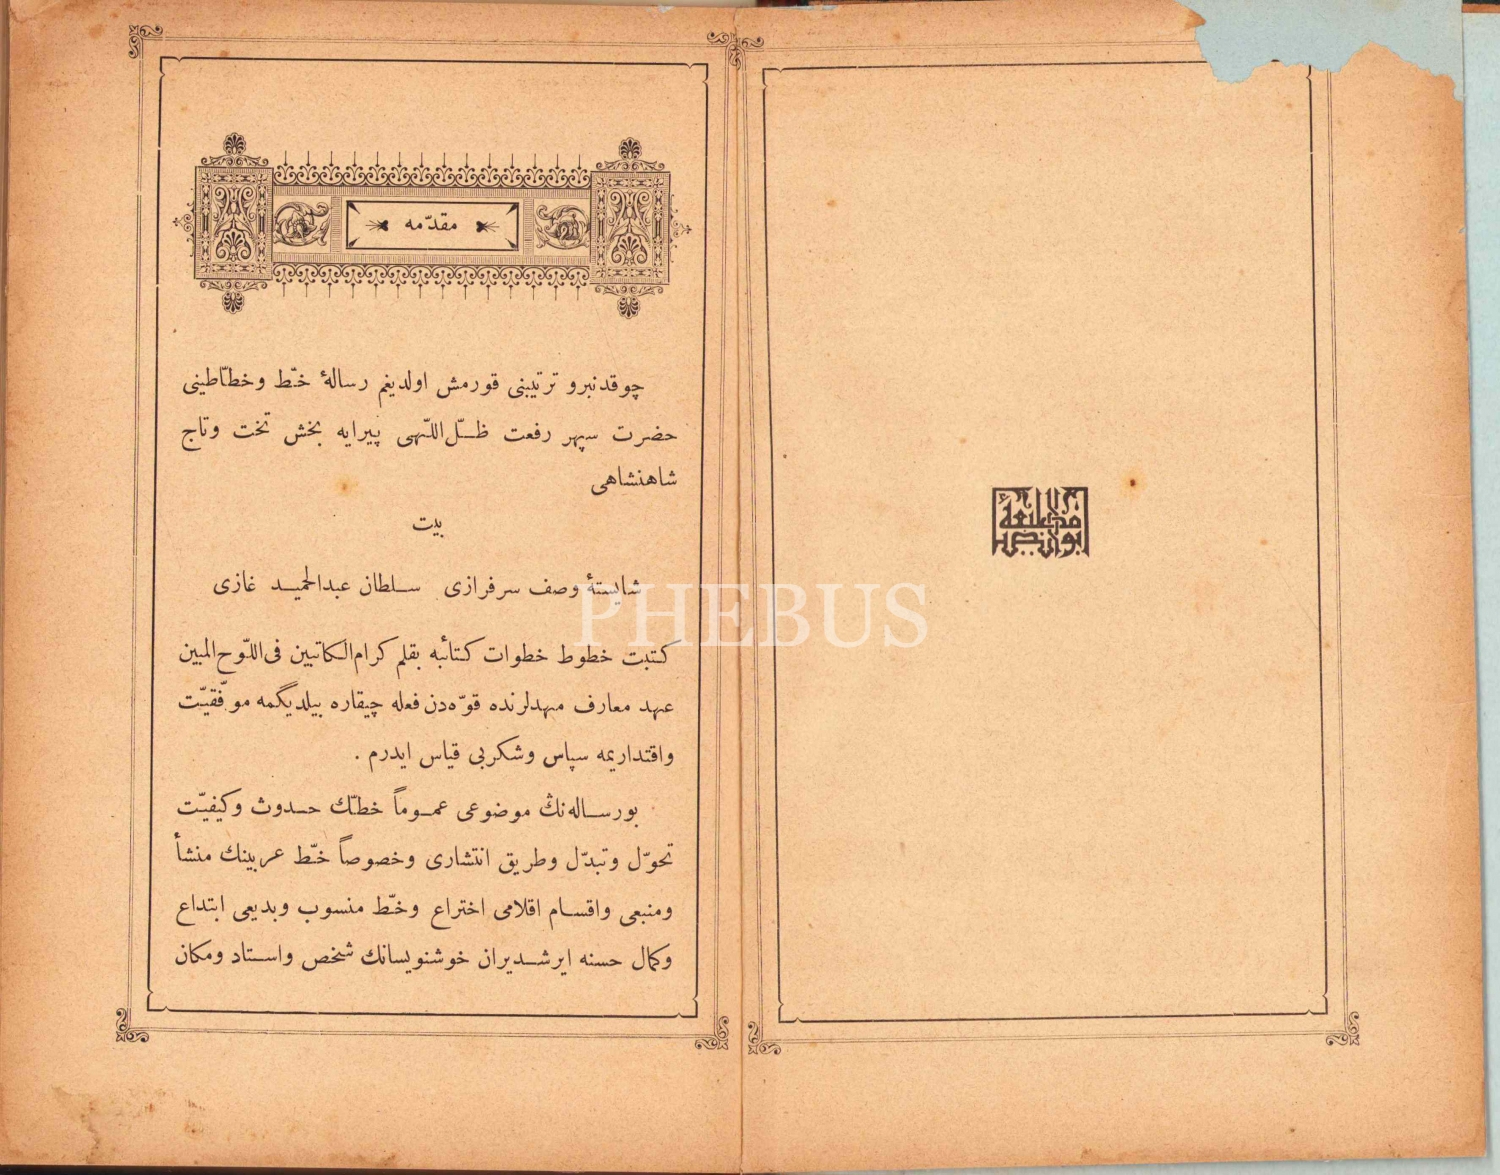 مطبعهٔ
ابوالضيا
مقدّمه
چوقدنبرو ترتيبنی قورمش اولديغم رسالهٔ خطّ وخطّاطينی
حضرت سپهر رفعت ظلّ‌اللّهی پيرايه بخش تخت وتاج
شاهنشاهی
بيت
شايستهٔ وصف سرفرازی سلطان عبدالحميد غازی
كتبت خطوط خطوات كتائبه بقلم كرام‌الكاتبين فی‌اللّوح‌المبين
عهد معارف مهدلرنده قوّه‌دن فعله چيقاره بيلديگمه موفّقيّت
واقتداريمه سپاس وشكربی قياس ايدرم .
بورساله‌نڭ موضوعی عموماً خطّك حدوث وكيفيّت
تحوّل وتبدّل وطريق انتشاری وخصوصاً خطّ عربينك منشأ
ومنبعی واقسام اقلامی اختراع وخطّ منسوب وبديعی ابتداع
وكمال حسنه ايرشديران خوشنويسانك شخص واستاد ومكان
PHEBUS